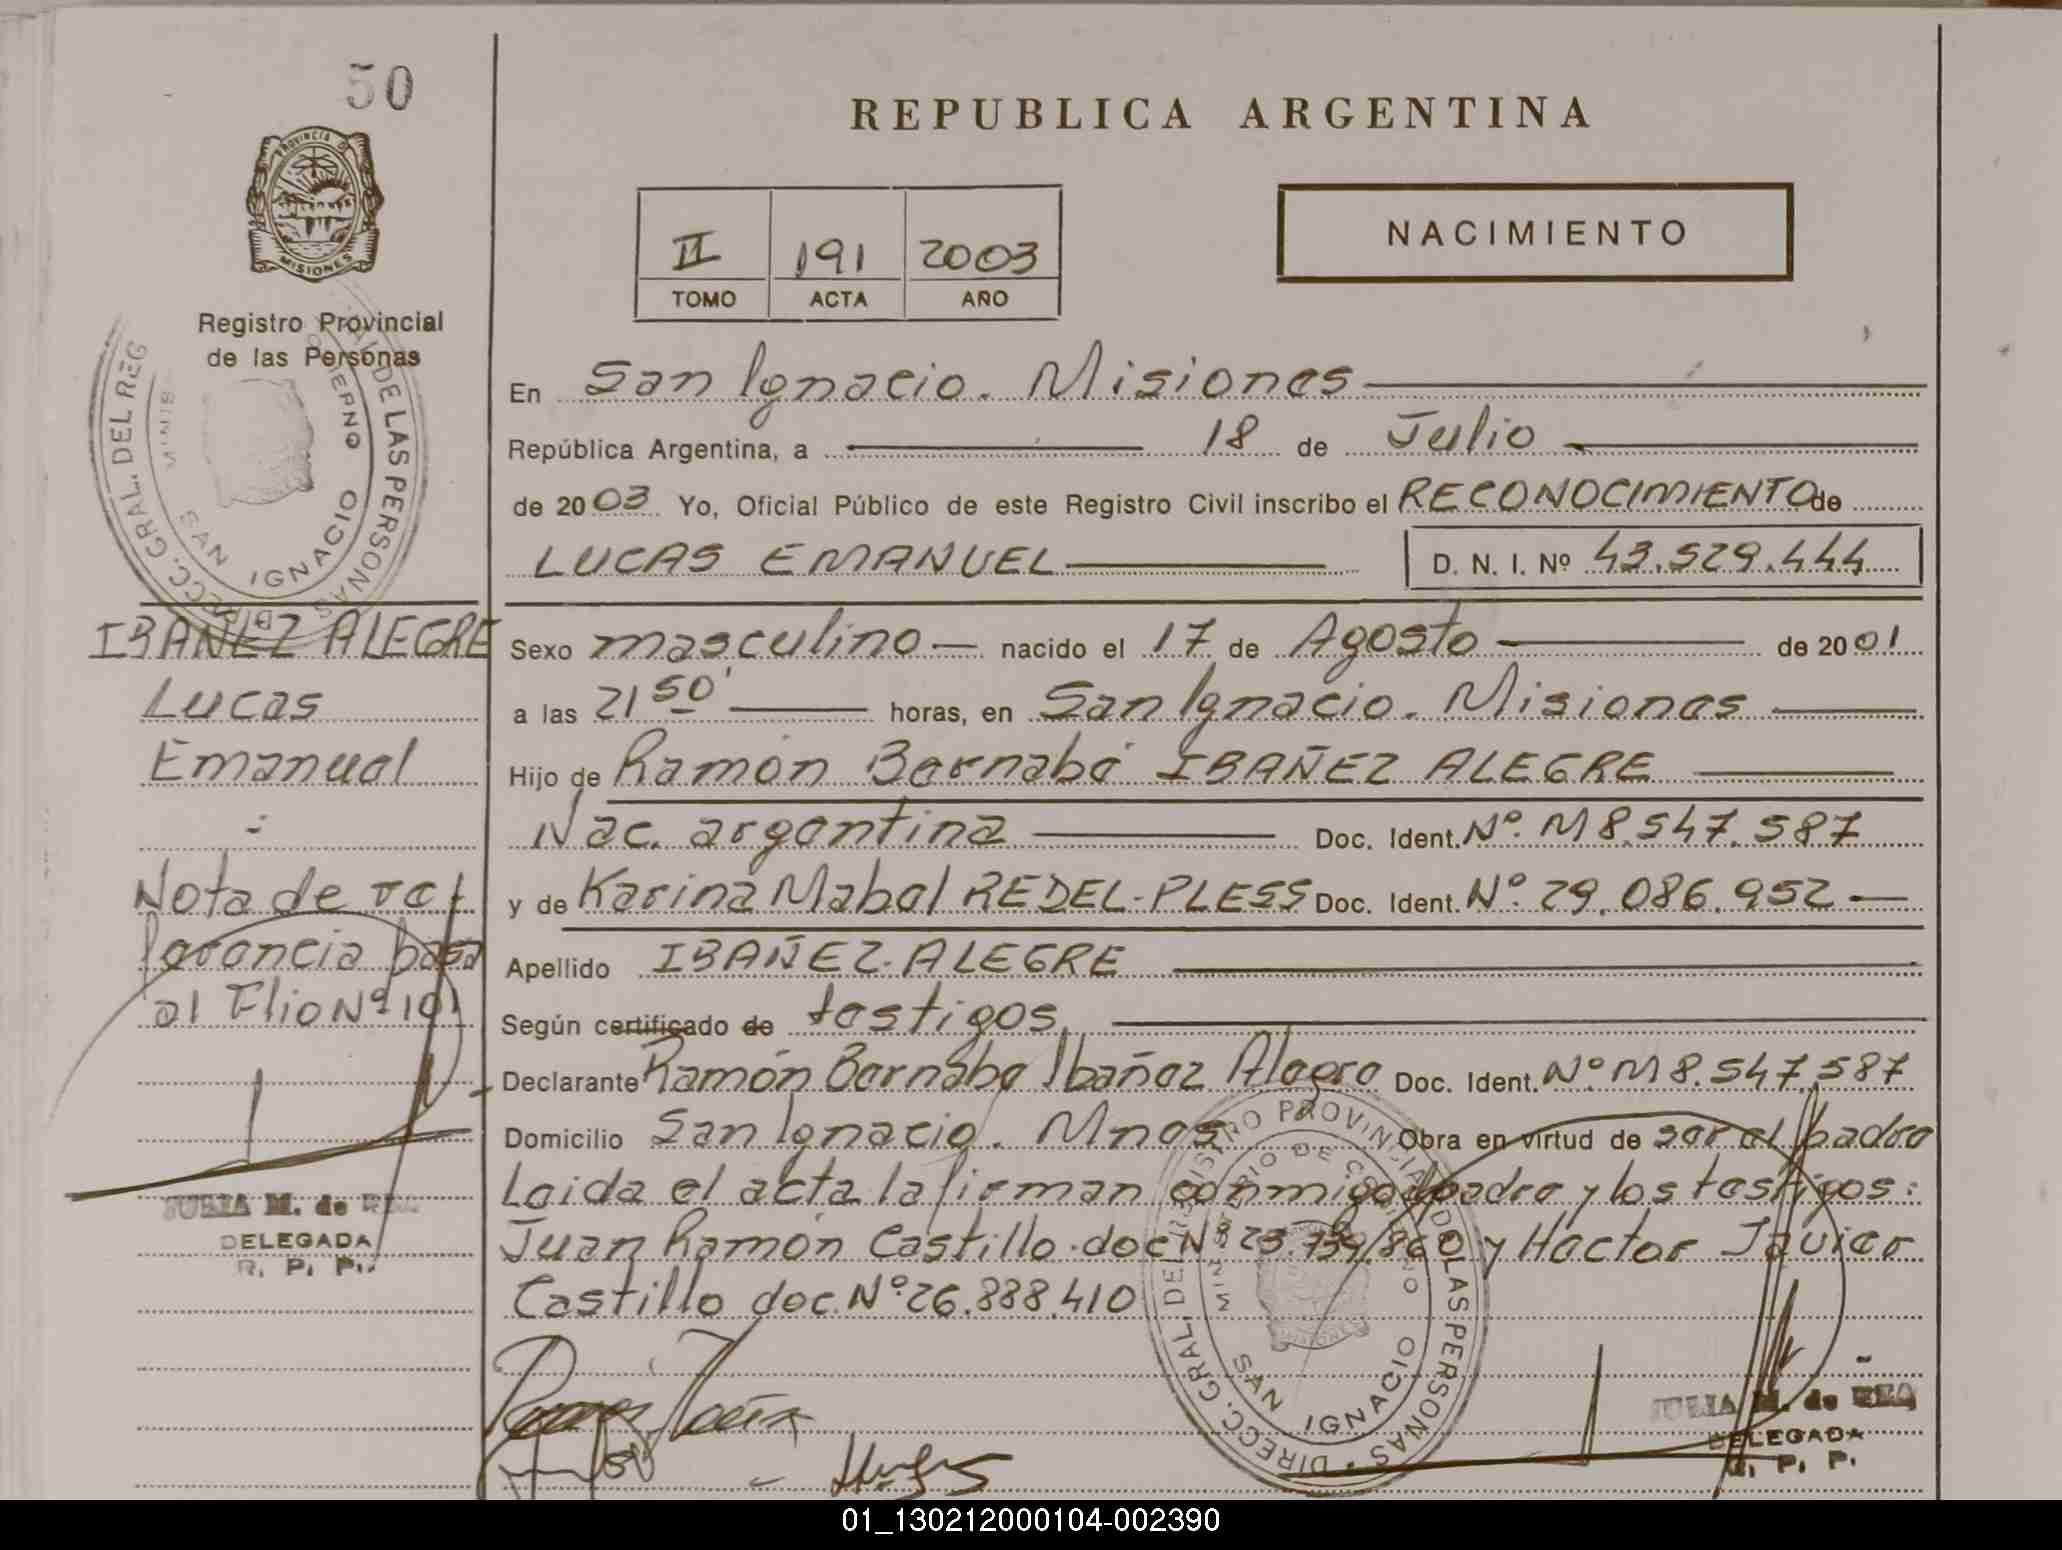 50
REPUBLICA ARGENTINA
PROVINCIA D
MISIONES
II 191 2003
TOMO ACTA AÑO
NACIMIENTO
Registro Provincial
de las Personas
DIRECC. GRAL. DEL REG DE LAS PERSONAS
SAN IGNACIO
En San Ignacio. Misiones
República Argentina, a 18 de Julio
de 2003 Yo, Oficial Público de este Registro Civil inscribo el RECONOCIMIENTO de
LUCAS EMANUEL D. N. I. Nº 43.529.444
IBAÑEZ ALEGRE
Lucas
Emanuel
Sexo masculino nacido el 17 de Agosto de 2001
a las 21 50' horas, en San Ignacio. Misiones
Hijo de Ramón Bernabé IBAÑEZ ALEGRE
Nac. argentina Doc. Ident. Nº. M 8.547.587
y de Karina Mabel REDEL-PLESS Doc. Ident. Nº. 29.086.952
Nota de re
ferencia pasa
al Flio Nº 101
Apellido IBAÑEZ-ALEGRE
Según certificado de testigos
Declarante Ramón Bernabe Ibañez Alegre Doc. Ident. Nº M 8.547.587
Domicilio San Ignacio. Mnes Obra en virtud de ser el padre
Leida el acta la firman conmigo padre y los testigos:
Juan Ramón Castillo doc Nº 23.739/860 y Hector Javier
Castillo doc. Nº 26.888.410
JULIA M. de
DELEGADA
R. P. P.
DIRECC. GRAL. DEL REGISTRO PROVINCIAL DE LAS PERSONAS
SAN IGNACIO
JULIA M. de
DELEGADA
R. P. P.
01_130212000104-002390